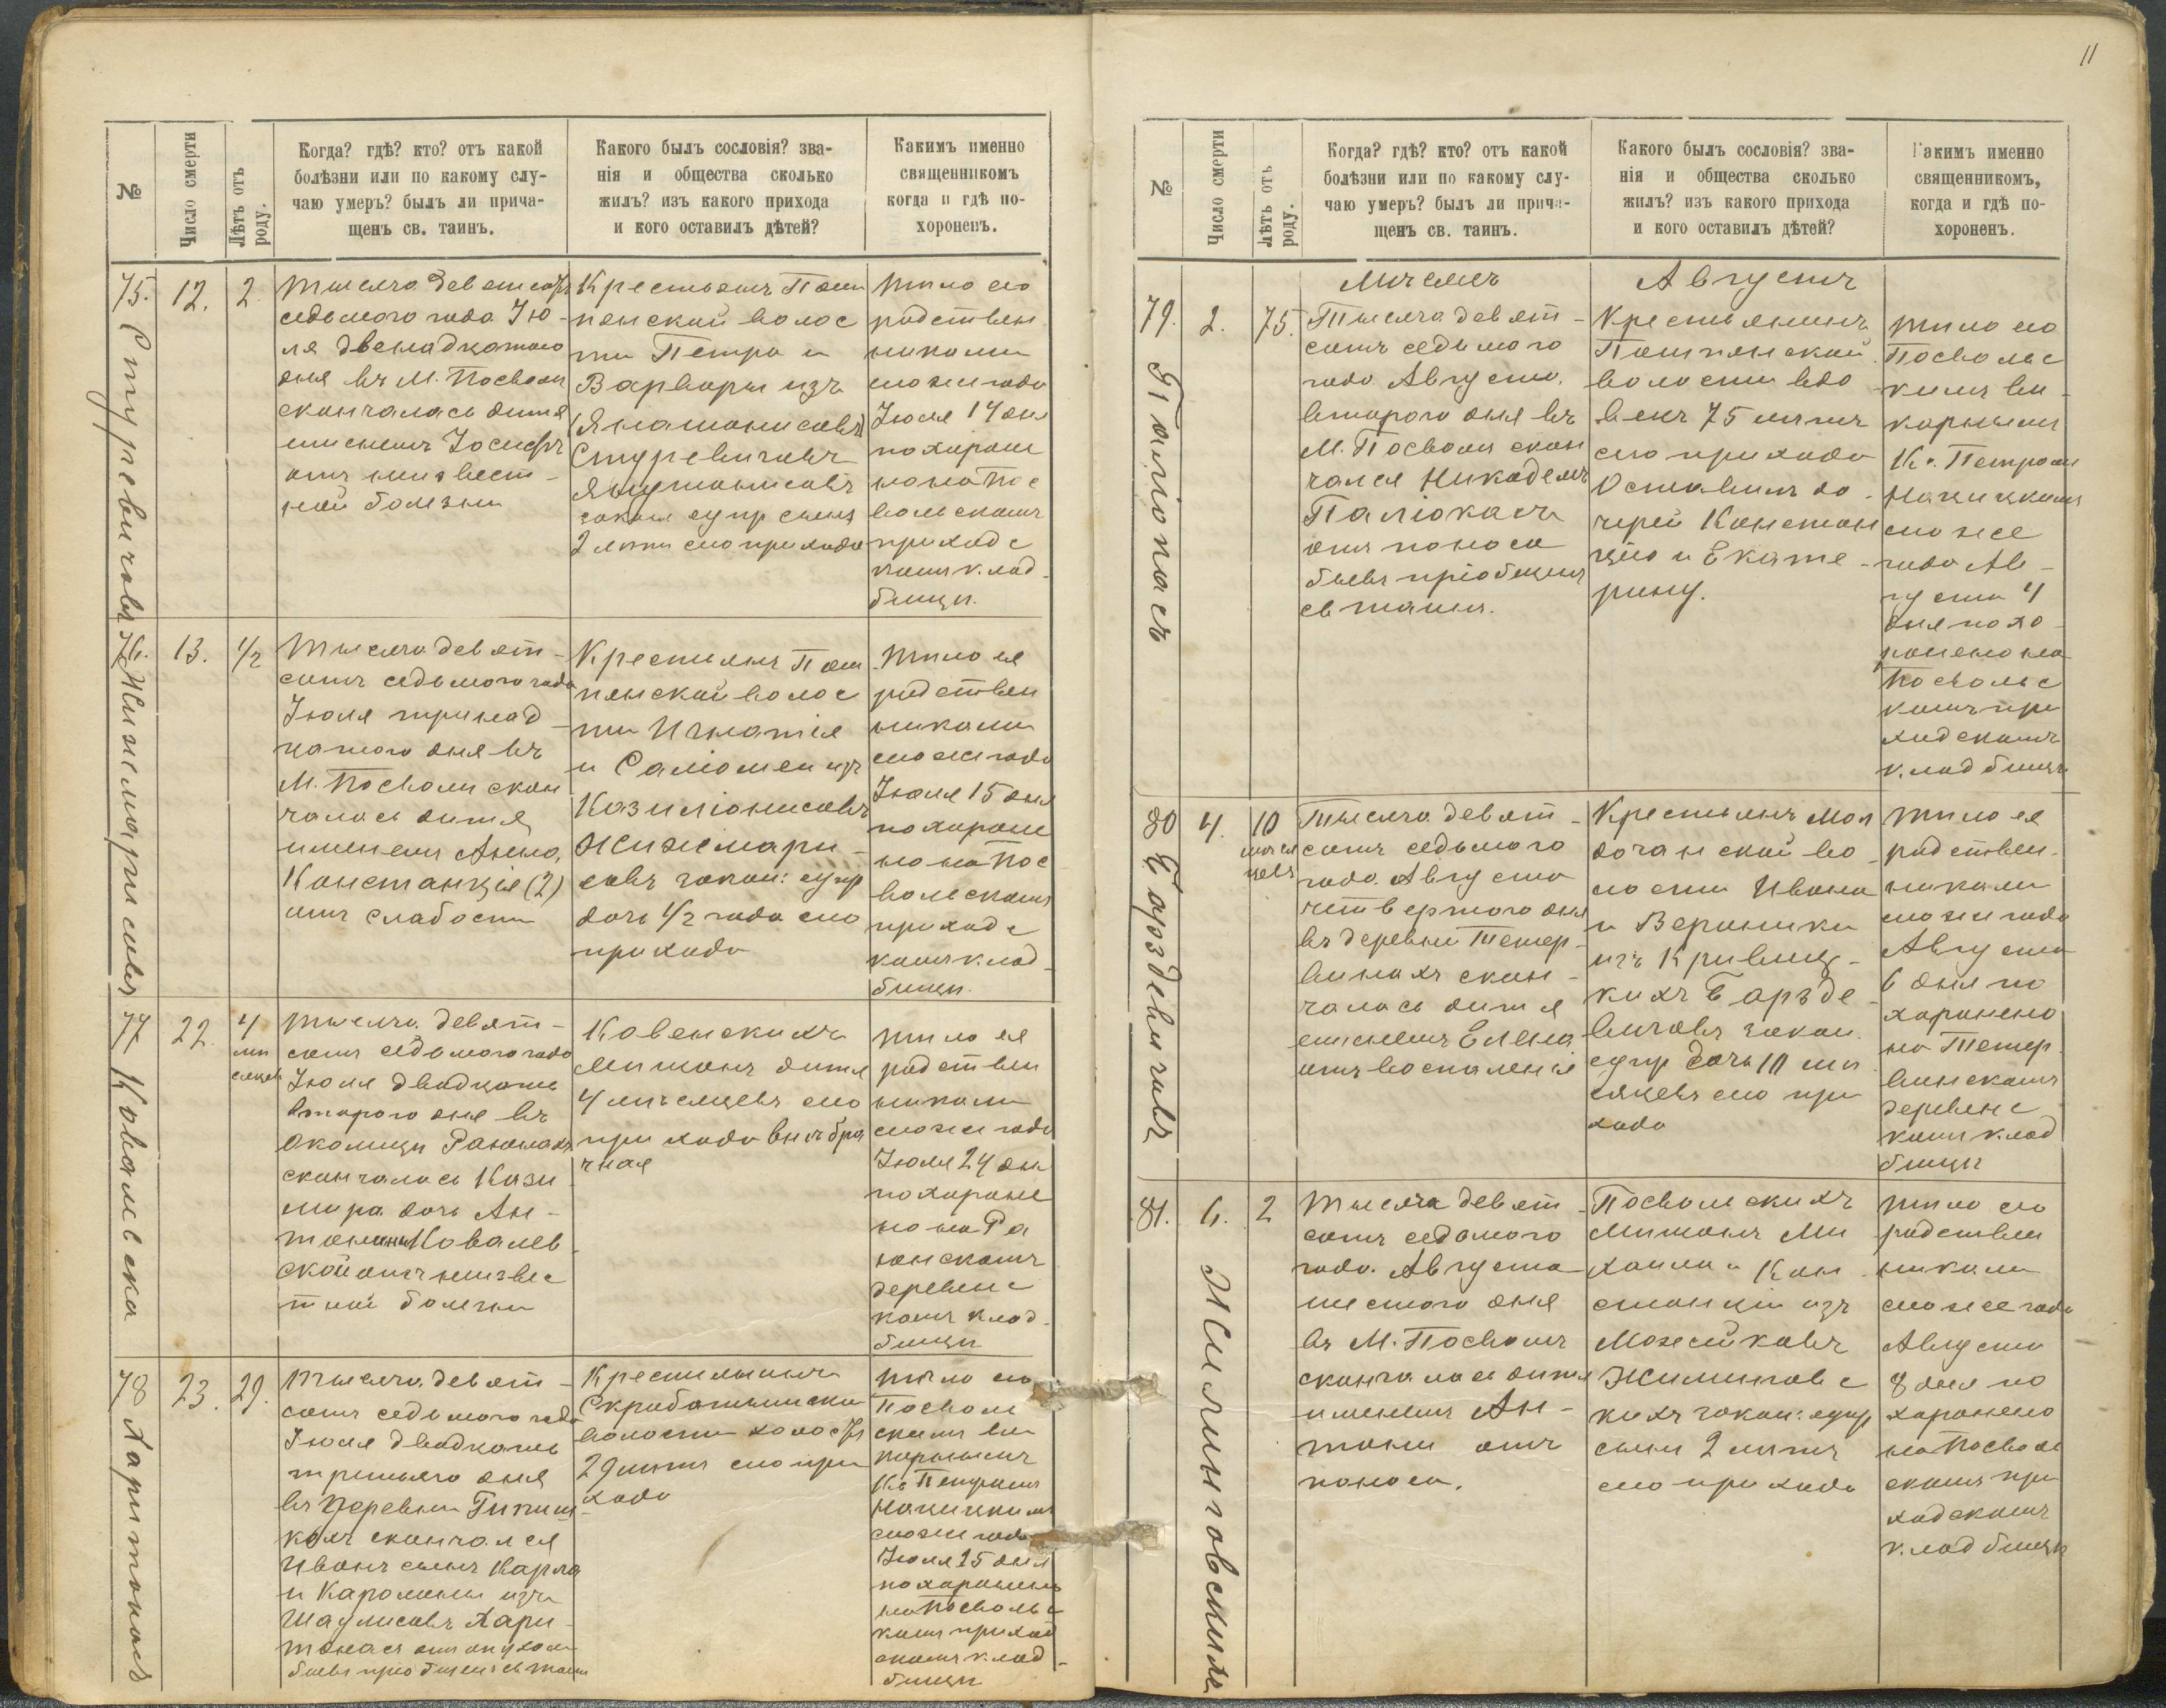 11
№
Число смерти
Лѣтъ отъ роду.
Когда? гдѣ? кто? отъ какой
болѣзни или по какому слу-
чаю умеръ? былъ ли прича-
щенъ св. таинъ.
Какого былъ сословія? зва-
нія и общества сколько
жилъ? изъ какого прихода
и кого оставилъ дѣтей?
Какимъ именно
священникомъ
когда и гдѣ по-
хороненъ.
75.
Стуревичовъ
12.
2.
Тысяча девятсотъ
седьмого года Ію-
ля двенадцатого
дня въ М. Посволи
скончалась дитя
именемъ Іосифъ
отъ неизвест-
ной болезни
Крестьянъ Пош
понской волос
ти Петра и
Варвары изъ
Стуревичовъ
закон супр сынъ
2 лѣти сего прихода
тѣло его
родствен
никами
сего же года
Іюля 14 дня
похороне
но на Пос
вольскомъ
приходс
комъ клад-
бищи.
76.
Жижмарисовъ
13.
1/2
Тысяча девят-
сотъ седьмого года
Іюля тринад-
цатого дня въ
М. Посволи скон
чалась дитя
именемъ Анна,
Констанція (2)
отъ слабости
Крестьянъ Пош
понской волос
ти Игнатія
и Саломеи изъ
Казиліонисовъ
Жижмари-
совъ закон: супр
дочь 1/2 года сего
прихода
тѣло ея
родствен
никами
сего же года
Іюля 15 дня
похороне
но на Пос
вольскомъ
приходс
комъ клад-
бищи.
77
Ковальска
22.
4
мѣ
сяцев
Тысяча девят-
сотъ седьмого года
Іюля двадцать
второго дня въ
околици Раюнахъ
скончалась Кази
мира дочь Ан-
тонины Ковалев
ской отъ неизвес
тной болезни
Ковенскихъ
Мещанъ дитя
4 мѣсяцевъ сего
прихода внѣбра
чная
тѣло ея
родствен
никами
сего же года
Іюля 24 дня
похороне
но на Ра
юнскомъ
деревенс
комъ клад-
бищи
78
Харитонасъ
23.
29.
Тысяча девят-
сотъ седьмого года
Іюля двадцать
третьяго дня
въ деревни
скончался
Иванъ сынъ Карла
и Каролины изъ
Шаулисовъ Хари-
тонасъ отъ опухоли
бывъ приобщенъ св таинъ
Крестьянинъ
волости холостъ
29 лѣтъ сего при
хода
тѣло его
Посволь
скимъ ви
карнымъ
Кс Петромъ
сего же года
Іюля 25 дня
похоронено
на Посвольс
комъ приход
скомъ клад-
бищи
№
Число смерти
Лѣтъ отъ роду.
Когда? гдѣ? кто? отъ какой
болѣзни или по какому слу-
чаю умеръ? былъ ли прича-
щенъ св. таинъ.
Какого былъ сословія? зва-
нія и общества сколько
жилъ? изъ какого прихода
и кого оставилъ дѣтей?
Какимъ именно
священникомъ,
когда и гдѣ по-
хороненъ.
Мѣсяцъ
Августъ
79.
Паліокасъ
2.
75.
Тысяча девят-
сотъ седьмого
года Августа
второго дня въ
М. Посволи скон
чался Никодемъ
Паліокасъ
отъ поноса
бывъ пріобщенъ
св таинъ.
Крестьянинъ
Пошпонской
волости вдо-
вецъ 75 лѣтъ
сего прихода
Оставилъ до-
черей Констан
цію и Екате-
рину.
тѣло его
Посвольс
кимъ ви-
карнымъ
Кс. Петромъ
сего же
года Ав-
густа 4
дня похо-
ронено на
Посвольс
комъ при
ходскомъ
кладбищи
80
Барздевичовъ
4.
10
мѣся
цевъ
Тысяча девят-
сотъ седьмого
года Августа
четвертого дня
въ деревни Тетер-
винахъ скон-
чалась дитя
именемъ Елена
отъ воспаленія
Крестьянъ
во-
лости Ивана
и Вероники
изъ Кривиц-
кихъ Барзде-
вичовъ закон
супр дочь 10 мѣ
сяцевъ сего при
хода
тѣло ея
родствен-
никами
сего же года
Августа
6 дня по
хоронено
на Тетер
винскомъ
деревенс
комъ клад
бищи
81.
Жилинговскихъ
6.
2
Тысяча девят
сотъ седьмого
года Августа
шестого дня
въ М. Посволи
скончалась дитя
именемъ Ан-
тони отъ
поноса.
Посвольскихъ
Мещанъ Ми
хаила и Кон
станціи изъ
Можейковъ
Жилинговс
кихъ закон: супр
сынъ 2 лѣтъ
сего прихода
тѣло его
родствен
никами
сего же года
Августа
8 дня по
хоронено
на Посволь
скомъ при
ходскомъ
кладбищи